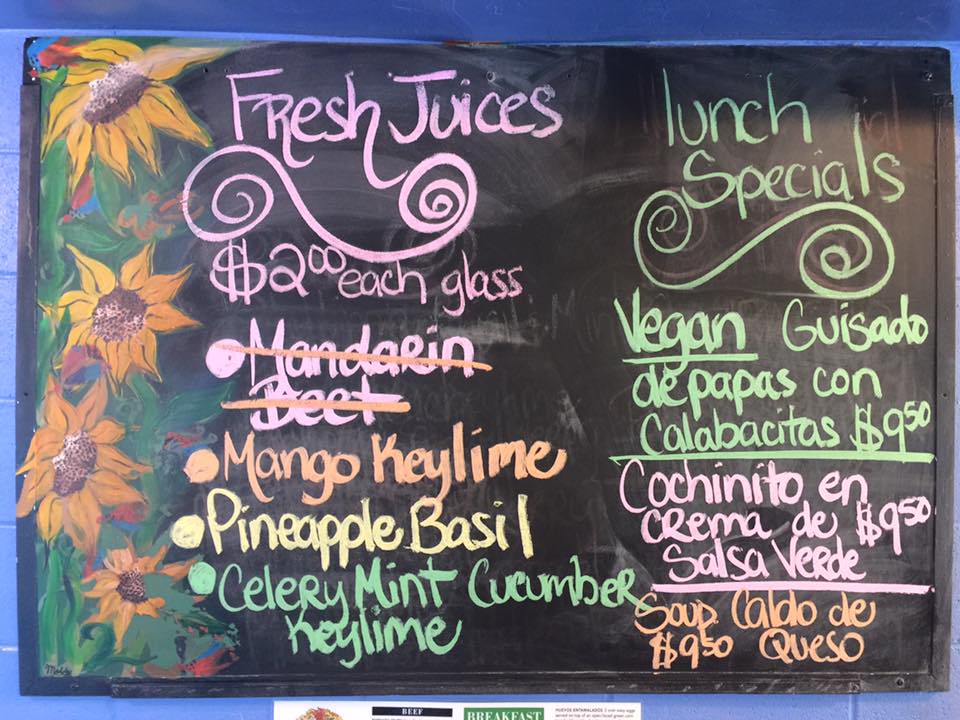 Fresh Juices
$2.00 each glass
Mandarin
Beet
Mango Keylime
Pineapple Basil
Celery Mint Cucumber
Keylime
lunch
Specials
Vegan Guisado
de papas con
Calabacitas $9.50
Cochinito en
crema de $9.50
Salsa Verde
Soup Caldo de
$9.50 Queso
BEEF
BREAKFAST
HUEVOS ENTAMALADOS 2 over easy eggs